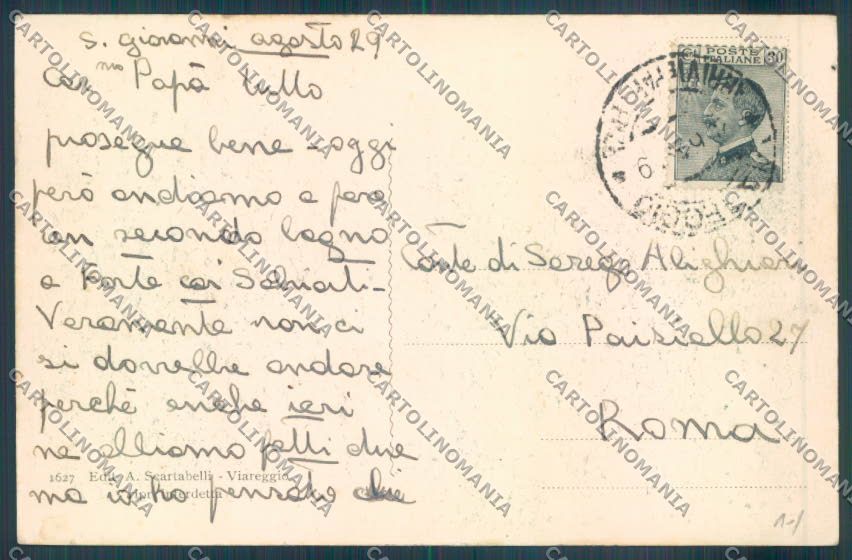 S. giovanni agosto 29
Car mo Papà tutto
prosegue bene - oggi
però andiamo a fare
un secondo bagno
a Forte coi Salviati -
Veramente non ci
si dovrebbe andare
perchè anche ieri
ne abbiamo fatti due
ma ho pensato che
1627 Edit. A. Scartabelli - Viareggio
Ripr. interdetta
POSTE
ITALIANE
30
VIAREGGIO
Conte di Serego Alighieri
Via Paisiello 27
Roma
CARTOLINOMANIA